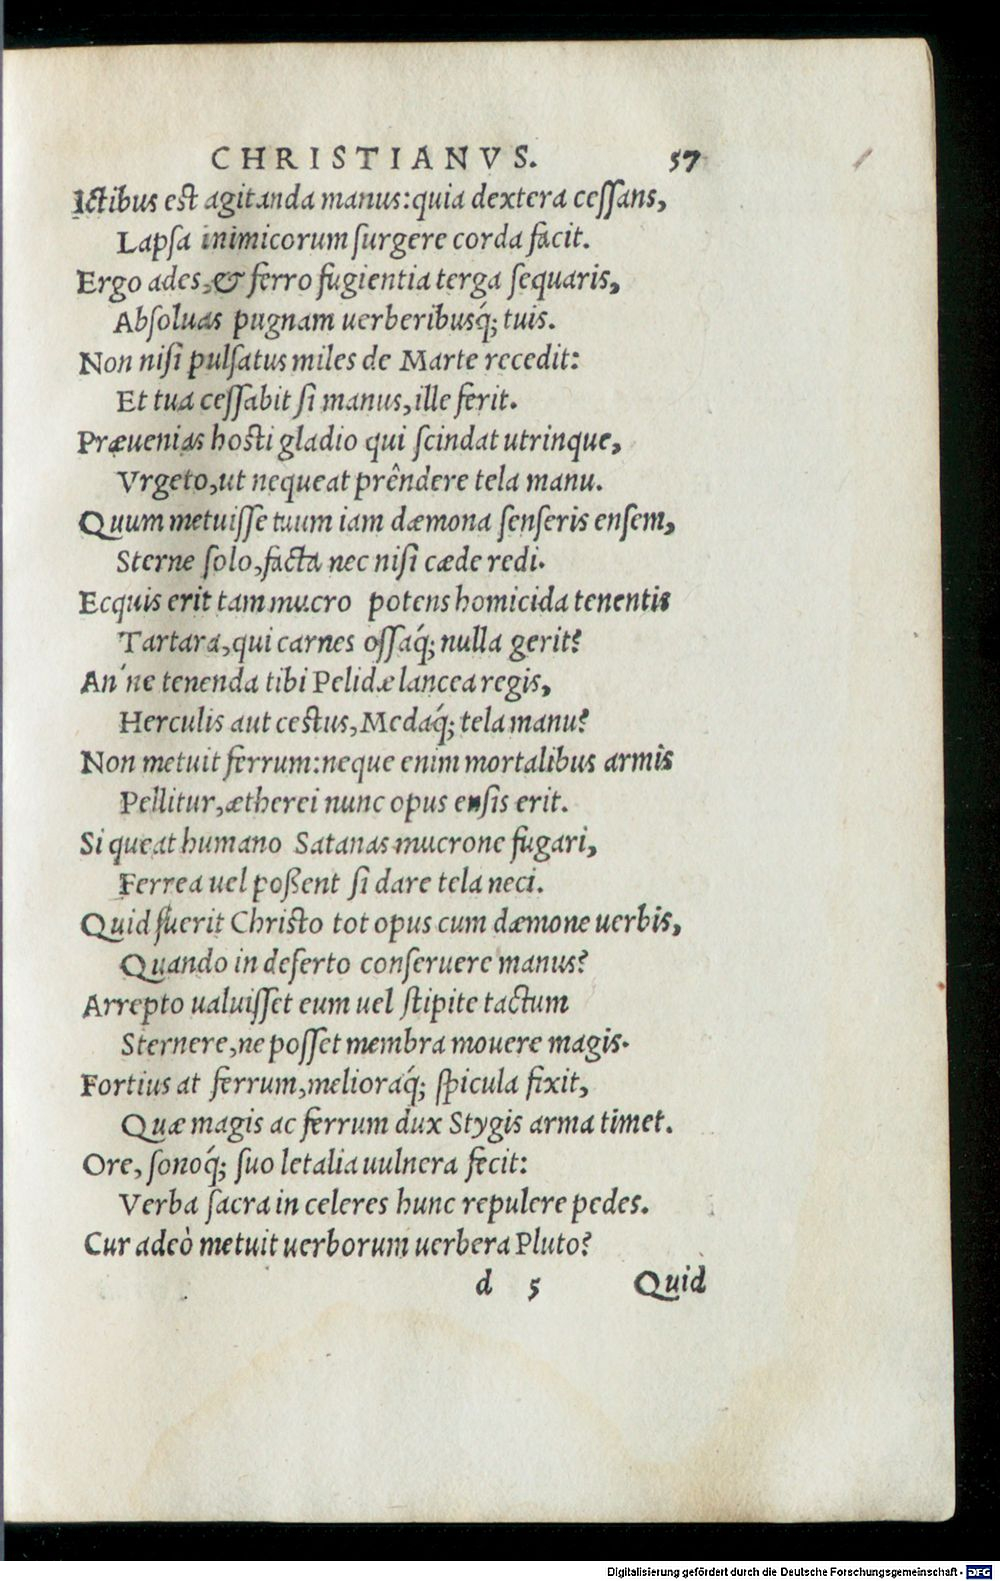 CHRISTIANVS. 57
Ictibus est agitanda manus: quia dextera cessans,
Lapsa inimicorum surgere corda facit.
Ergo ades, & ferro fugientia terga sequaris,
Absoluas pugnam uerberibusq́; tuis.
Non nisi pulsatus miles de Marte recedit:
Et tua cessabit si manus, ille ferit.
Præuenias hosti gladio qui scindat utrinque,
Vrgeto, ut nequeat prêndere tela manu.
Quum metuisse tuum iam dæmona senseris ensem,
Sterne solo, facta nec nisi cæde redi.
Ecquis erit tam mucro potens homicida tenentis
Tartara, qui carnes ossaq́; nulla gerit?
An'ne tenenda tibi Pelidæ lancea regis,
Herculis aut cestus, Medaq́; tela manu?
Non metuit ferrum: neque enim mortalibus armis
Pellitur, ætherei nunc opus ensis erit.
Si queat humano Satanas mucrone fugari,
Ferrea uel poßent si dare tela neci.
Quid fuerit Christo tot opus cum dæmone uerbis,
Quando in deserto conseruere manus?
Arrepto ualuisset eum uel stipite tactum
Sternere, ne posset membra mouere magis.
Fortius at ferrum, melioraq́; spicula fixit,
Quæ magis ac ferrum dux Stygis arma timet.
Ore, sonoq́; suo letalia uulnera fecit:
Verba sacra in celeres hunc repulere pedes.
Cur adeò metuit uerborum uerbera Pluto?
d 5 Quid
Digitalisierung gefördert durch die Deutsche Forschungsgemeinschaft - DFG